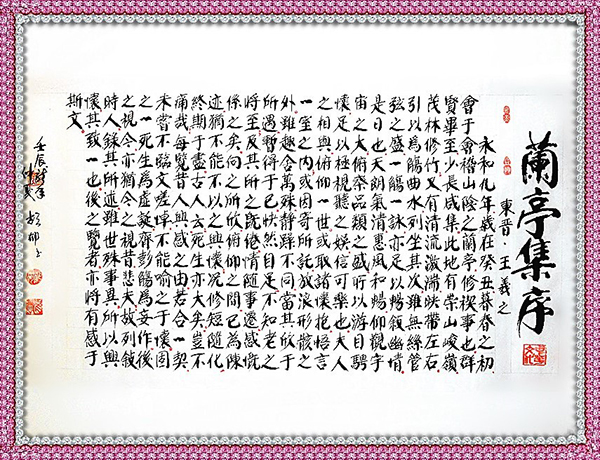 蘭亭集序
東晋·王羲之
永和九年歲在癸丑暮春之初
會于會稽山陰之蘭亭修禊事也群
賢畢至少長咸集此地有崇山峻嶺
茂林修竹又有清流激湍映帶左右
引以為觴曲水列坐其次雖無絲管
弦之盛一觴一詠亦足以暢敘幽情
是日也天朗氣清惠風和暢仰觀宇
宙之大俯察品類之盛所以游目騁
懷足以極視聽之娛信可樂也夫人
之相與俯仰一世或取諸懷抱悟言
一室之内或因寄所託放浪形骸之
外雖趣舍萬殊靜躁不同當其欣于
所遇暫得于己快然自足不知老之
將至及其所之既倦情隨事遷感慨
係之矣向之所欣俯仰之間已為陳
迹猶不能不以之興懷況修短隨化
終期于盡古人云死生亦大矣豈不
痛哉每覽昔人興感之由若合一契
未嘗不臨文嗟悼不能喻之于懷固
之一死生為虛誕齊彭殤為妄作後
之視今亦猶今之視昔悲夫故列敘
時人錄其所述雖世殊事異所以興
懷其致一也後之覽者亦將有感于
斯文
壬辰
仲夏